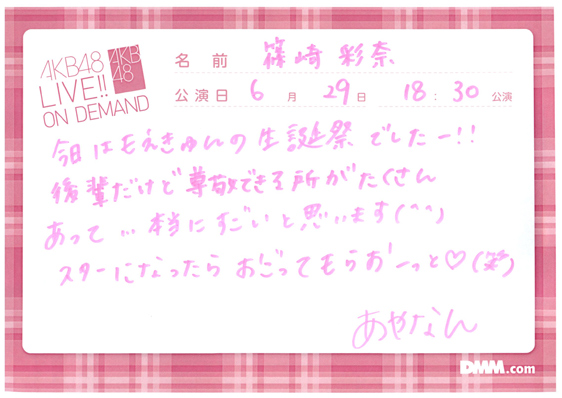 AKB48
LIVE!!
ON DEMAND
AKB
48
名前 篠崎 彩奈
公演日 6月 29日 18:30 公演
今日はもえきゅんの生誕祭でしたー!!
後輩だけど尊敬できる所がたくさん
あって…本当にすごいと思います(^^)
スターになったらおごってもらおーっと♡(笑)
あやなん
DMM.com